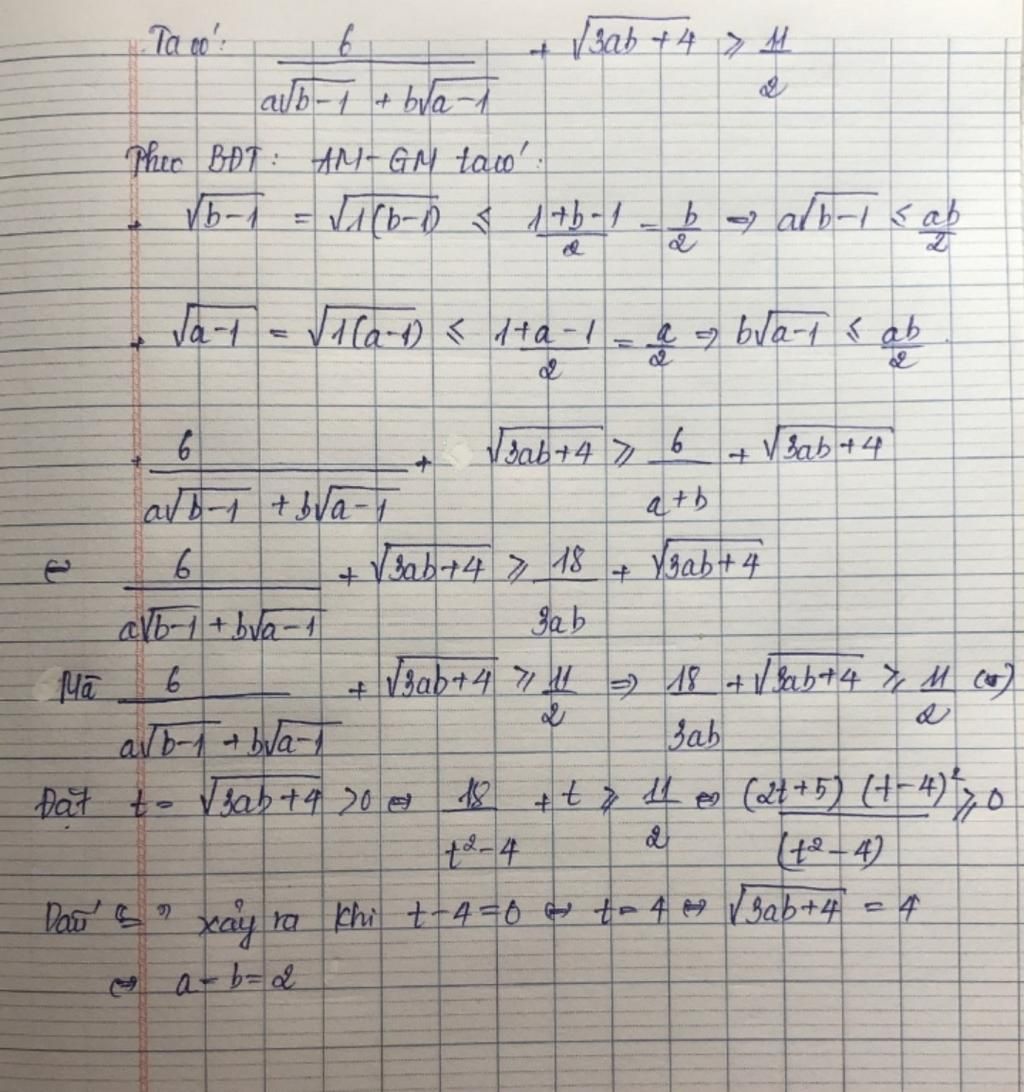 Ta có: 6/(a√(b-1) + b√(a-1)) + √(3ab+4) ≥ 11/2
Theo BĐT: AM-GM ta có:
+ √(b-1) = √(1(b-1)) ≤ (1+b-1)/2 = b/2 ⇒ a√(b-1) ≤ ab/2
+ √(a-1) = √(1(a-1)) ≤ (1+a-1)/2 = a/2 ⇒ b√(a-1) ≤ ab/2
+ 6/(a√(b-1) + b√(a-1)) + √(3ab+4) ≥ 6/(a+b) + √(3ab+4)
⇔ 6/(a√(b-1) + b√(a-1)) + √(3ab+4) ≥ 18/(3ab) + √(3ab+4)
Mà 6/(a√(b-1) + b√(a-1)) + √(3ab+4) ≥ 11/2 ⇒ 18/(3ab) + √(3ab+4) ≥ 11/2
Đặt t = √(3ab+4) >0 ⇔ 18/(t²-4) + t ≥ 11/2 ⇔ (2t+5)(t-4)²/(t²-4) ≥ 0
Dấu "=" xảy ra khi t-4=0 ⇔ t=4 ⇔ √(3ab+4) = 4
⇔ a=b=2